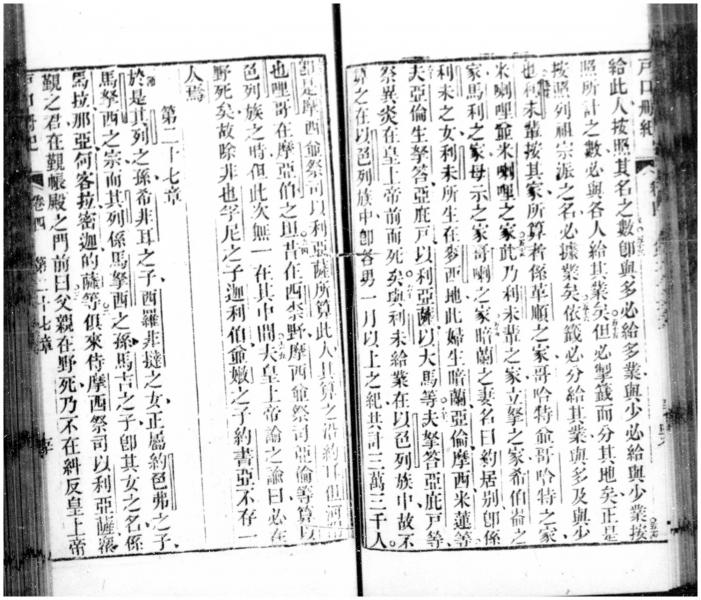 戶口冊紀
給此人按照其名之數卽與多必給多業與少必給與少業按
照所計之數必與各人給其業矣但必掣籤而分其地矣正是
按照列祖宗派之名必據業矣依籤必分給其業與多及與少
也利未輩按其家所算者係革順之家哥哈特爺哥哈特之家
米喇哩爺米喇哩之家此乃利未輩之家立拏之家希伯崙之
家馬利之家母示之家哥喇之家暗蘭之妻名曰約居別卽係
利未之女利未所生在麥西地此婦生暗蘭亞倫摩西米蓮等
夫亞倫生拏答亞庇戶以利亞薩以大馬等夫拏答亞庇戶等
祭異炎在皇上帝前而死矣與利未給業在以色列族中故不
算之在以色列族中卽各男一月以上之紀其計三萬三千人
都是摩西爺祭司以利亞薩所算此人其算之沿約耳但河
也哩哥在摩亞伯之坦昔在西柰野摩西爺祭司亞倫等算以
色列族之時但此次無一在其中間夫皇上帝諭之諭曰必在
野死矣故除非也孚尼之子迦利伯爺嫩之子約書亞不存一
人焉
第二十七章
於是其列之孫希非耳之子西羅非撻之女正屬約色弗之子
馬拏西之宗而其列係馬拏西之孫馬吉之子卽其女之名係
馬拉那亞何客拉密迦的薩等俱來侍摩西祭司以利亞薩
覲之君在覲帳殿之門前曰父親在野死乃不在糾反皇上帝
戶口冊紀 卷四 第二十七章